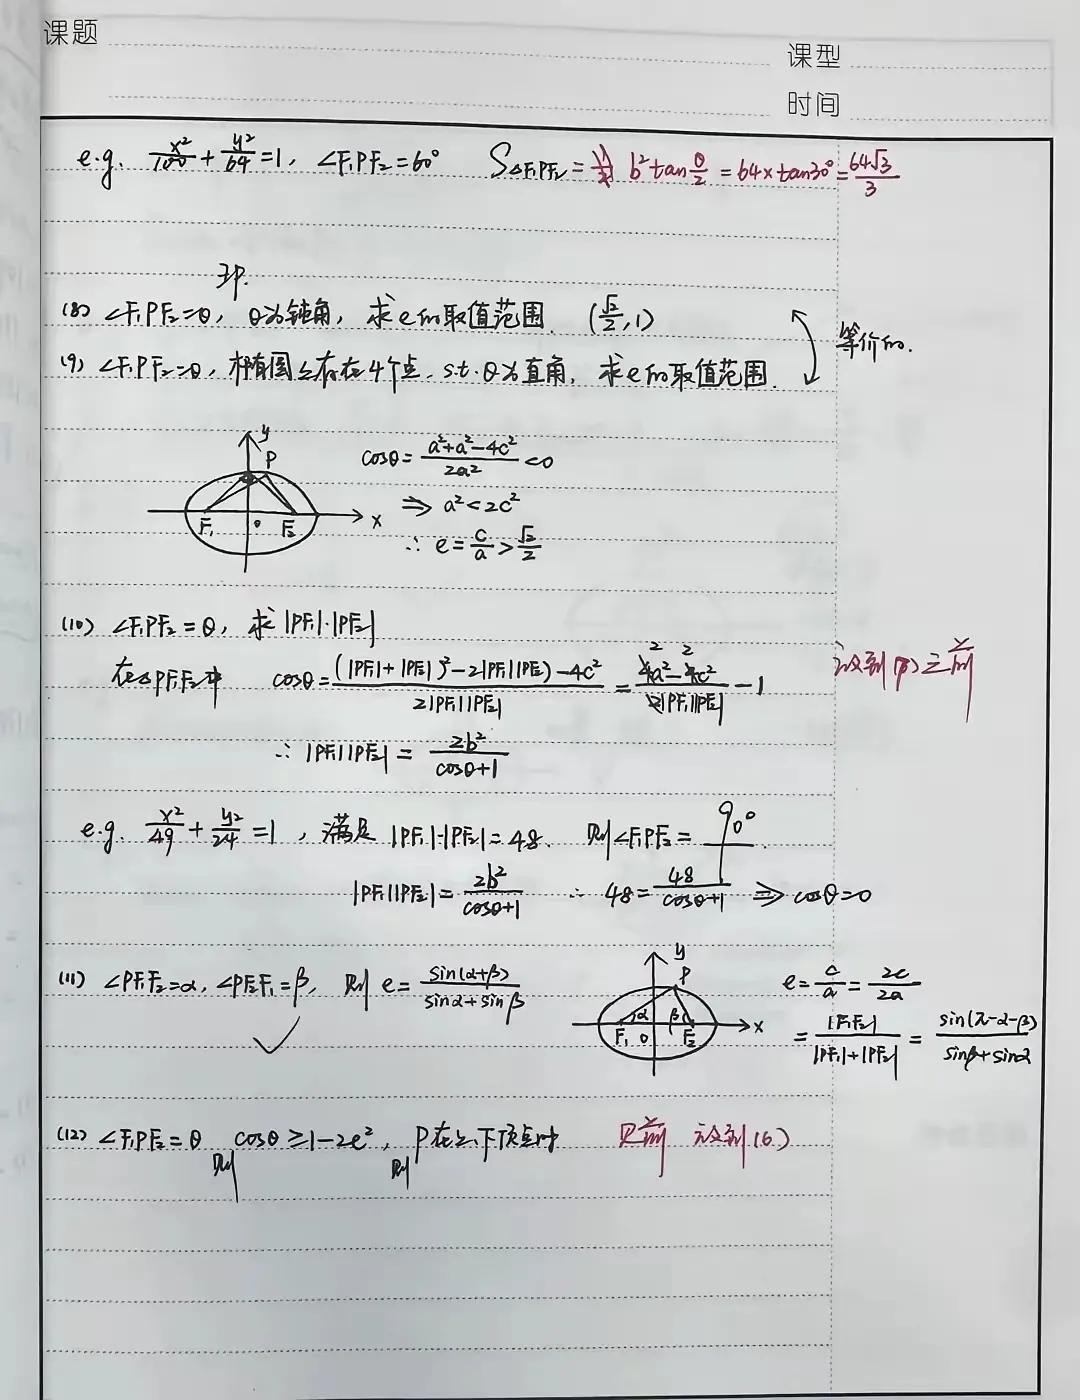 课题
课型
时间
e.g. x²/100 + y²/64 = 1, ∠F₁PF₂=60° S△F₁PF₂= b²tan θ/2 = 64×tan30° = 64√3/3
∃P.
(8) ∠F₁PF₂=θ, θ为钝角, 求e的取值范围. (√2/2, 1)
等价的.
(9) ∠F₁PF₂=θ, 椭圆上存在4个点, s.t. θ为直角, 求e的取值范围.
y P F₁ O F₂ x
cosθ = (a²+a²-4c²)/2a² <0
⇒ a²<2c²
∴ e = c/a > √2/2
(10) ∠F₁PF₂=θ, 求|PF₁|·|PF₂|
在△PF₁F₂中 cosθ = ((|PF₁|+|PF₂|)²-2|PF₁||PF₂|-4c²)/(2|PF₁||PF₂|) = (4a²-4c²)/(2|PF₁||PF₂|) - 1
2 2
放到(7)之前
∴ |PF₁||PF₂| = 2b²/(cosθ+1)
e.g. x²/49 + y²/24 = 1, 满足|PF₁|·|PF₂|=48. 则∠F₁PF₂= 90°.
|PF₁||PF₂| = 2b²/(cosθ+1) ∴ 48 = 48/(cosθ+1) ⇒ cosθ=0
(11) ∠PF₁F₂=α, ∠PF₂F₁=β, 则 e = sin(α+β)/(sinα+sinβ)
y P α β F₁ O F₂ x
e = c/a = 2c/2a
= |F₁F₂|/(|PF₁|+|PF₂|) = sin(π-α-β)/(sinβ+sinα)
(12) ∠F₁PF₂=θ 则 cosθ≥1-2e², 则 P在上、下顶点时 放到(6)